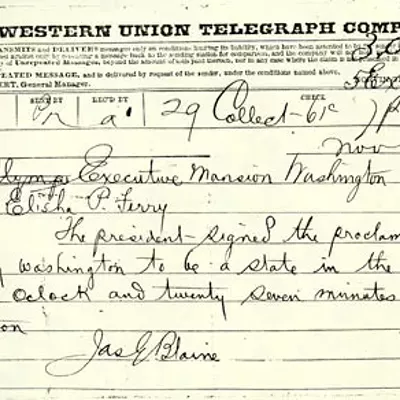 WESTERN UNION TELEGRAPH COMP
ANSMITS and DELIVERS messages only on conditions limiting its liability, which have been assented to by
of Unrepeated Messages, beyond the amount of tolls paid thereon, nor in any case where the claim is not
EATED MESSAGE, and is delivered by request of the sender, under the conditions named above.
ERT, General Manager.
SENT BY REC'D BY CHECK
a 29 Collect-61c
Nov
Executive Mansion Washington
Elisha P. Ferry
The president signed the proclam
washington to be a state in the
oclock and twenty seven minutes
on
Jas G Blaine